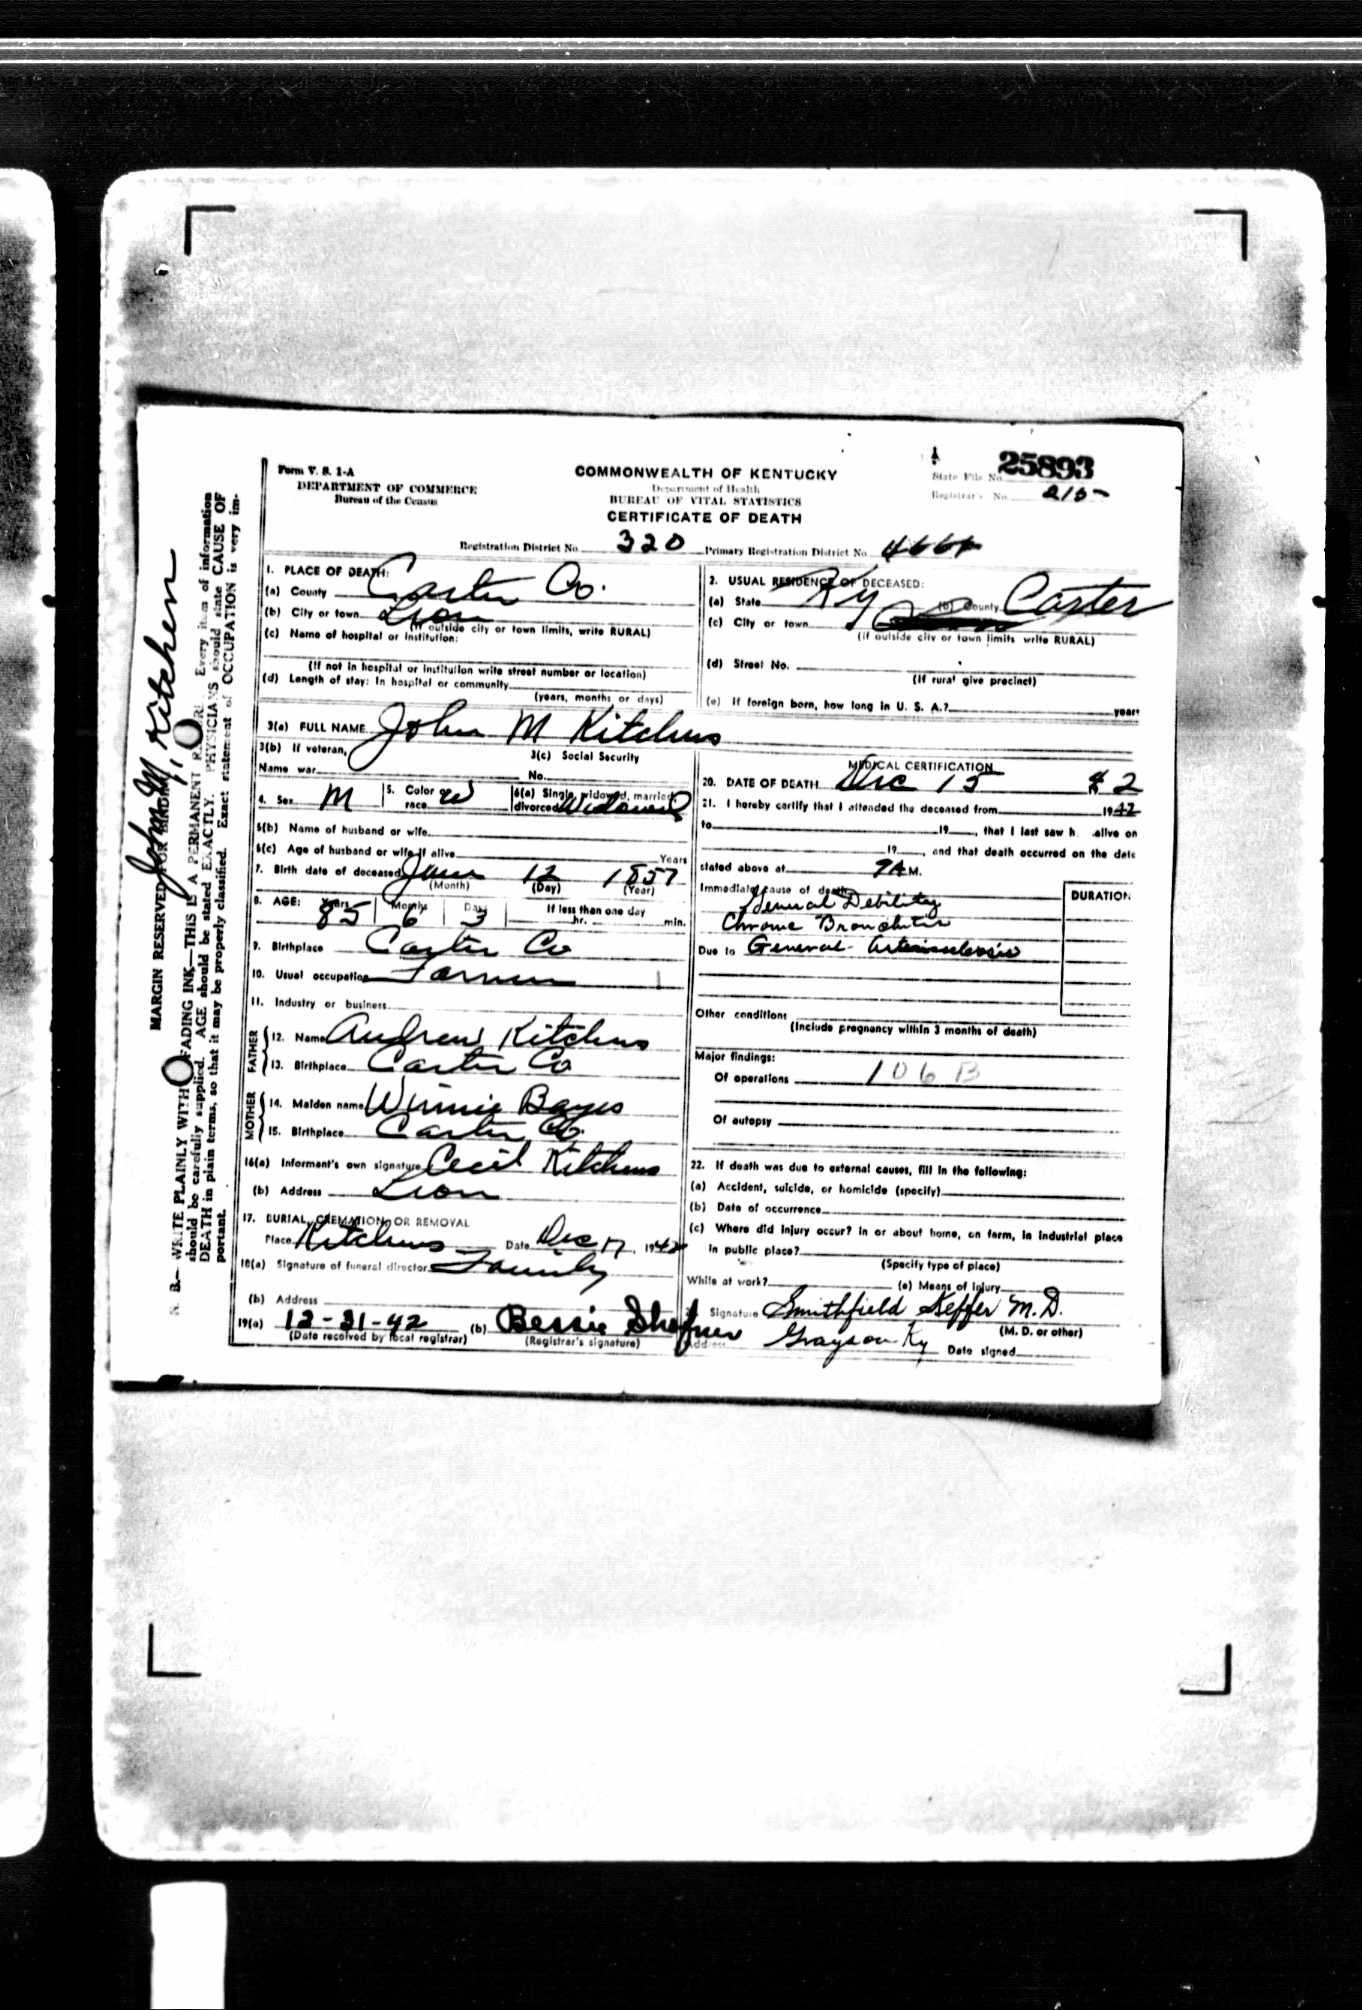 Form V. S. 1-A
DEPARTMENT OF COMMERCE
Bureau of the Census
COMMONWEALTH OF KENTUCKY
Department of Health
BUREAU OF VITAL STATISTICS
CERTIFICATE OF DEATH
State File No. 25893
Registrar's No. 215
Registration District No. 320 Primary Registration District No.
1. PLACE OF DEATH:
(a) County Carter Co.
(b) City or town Lion
(If outside city or town limits, write RURAL)
(c) Name of hospital or institution:
(If not in hospital or institution write street number or location)
(d) Length of stay: In hospital or community
(years, months or days)
2. USUAL RESIDENCE OF DECEASED:
(a) State Ky (b) County Carter
(c) City or town
(If outside city or town limits write RURAL)
(d) Street No.
(If rural give precinct)
(e) If foreign born, how long in U. S. A.? years
3(a) FULL NAME John M Kitchens
3(b) If veteran,
Name war
3(c) Social Security
No.
4. Sex M 5. Color or race W 6(a) Single, widowed, married, divorced Widowed
6(b) Name of husband or wife
6(c) Age of husband or wife if alive Years
7. Birth date of deceased June 12 1857
(Month) (Day) (Year)
8. AGE: Years 85 Months 6 Days 3 If less than one day
hr. min.
9. Birthplace Carter Co
10. Usual occupation Farmer
11. Industry or business
FATHER
12. Name Andrew Kitchens
13. Birthplace Carter Co
MOTHER
14. Maiden name Winnie Bayes
15. Birthplace Carter Co.
16(a) Informant's own signature Cecil Kitchens
(b) Address Lion
17. BURIAL, CREMATION, OR REMOVAL
Place Kitchens Date Dec 17, 1942
18(a) Signature of funeral director Family
(b) Address
19(a) 12-31-42 (b) Bessie
(Date received by local registrar) (Registrar's signature)
MEDICAL CERTIFICATION
20. DATE OF DEATH Dec 15 42
21. I hereby certify that I attended the deceased from 1942
to 19 , that I last saw h alive on
19 , and that death occurred on the date
stated above at 9A M.
Immediate cause of death
General Debility
Chronic Bronchitis
Due to General arteriosclerosis
DURATION
Other conditions
(Include pregnancy within 3 months of death)
Major findings:
Of operations 106 B
Of autopsy
22. If death was due to external causes, fill in the following:
(a) Accident, suicide, or homicide (specify)
(b) Date of occurrence
(c) Where did injury occur? in or about home, on farm, in industrial place
in public place?
(Specify type of place)
While at work? (e) Means of injury
Signature Smithfield Keffer M.D.
(M. D. or other)
Address Grayson Ky Date signed
John M. Kitchen
MARGIN RESERVED FOR BINDING
N. B.—WRITE PLAINLY WITH UNFADING INK—THIS IS A PERMANENT RECORD. Every item of information
should be carefully supplied. AGE should be stated EXACTLY. PHYSICIANS should state CAUSE OF
DEATH in plain terms, so that it may be properly classified. Exact statement of OCCUPATION is very im-
portant.